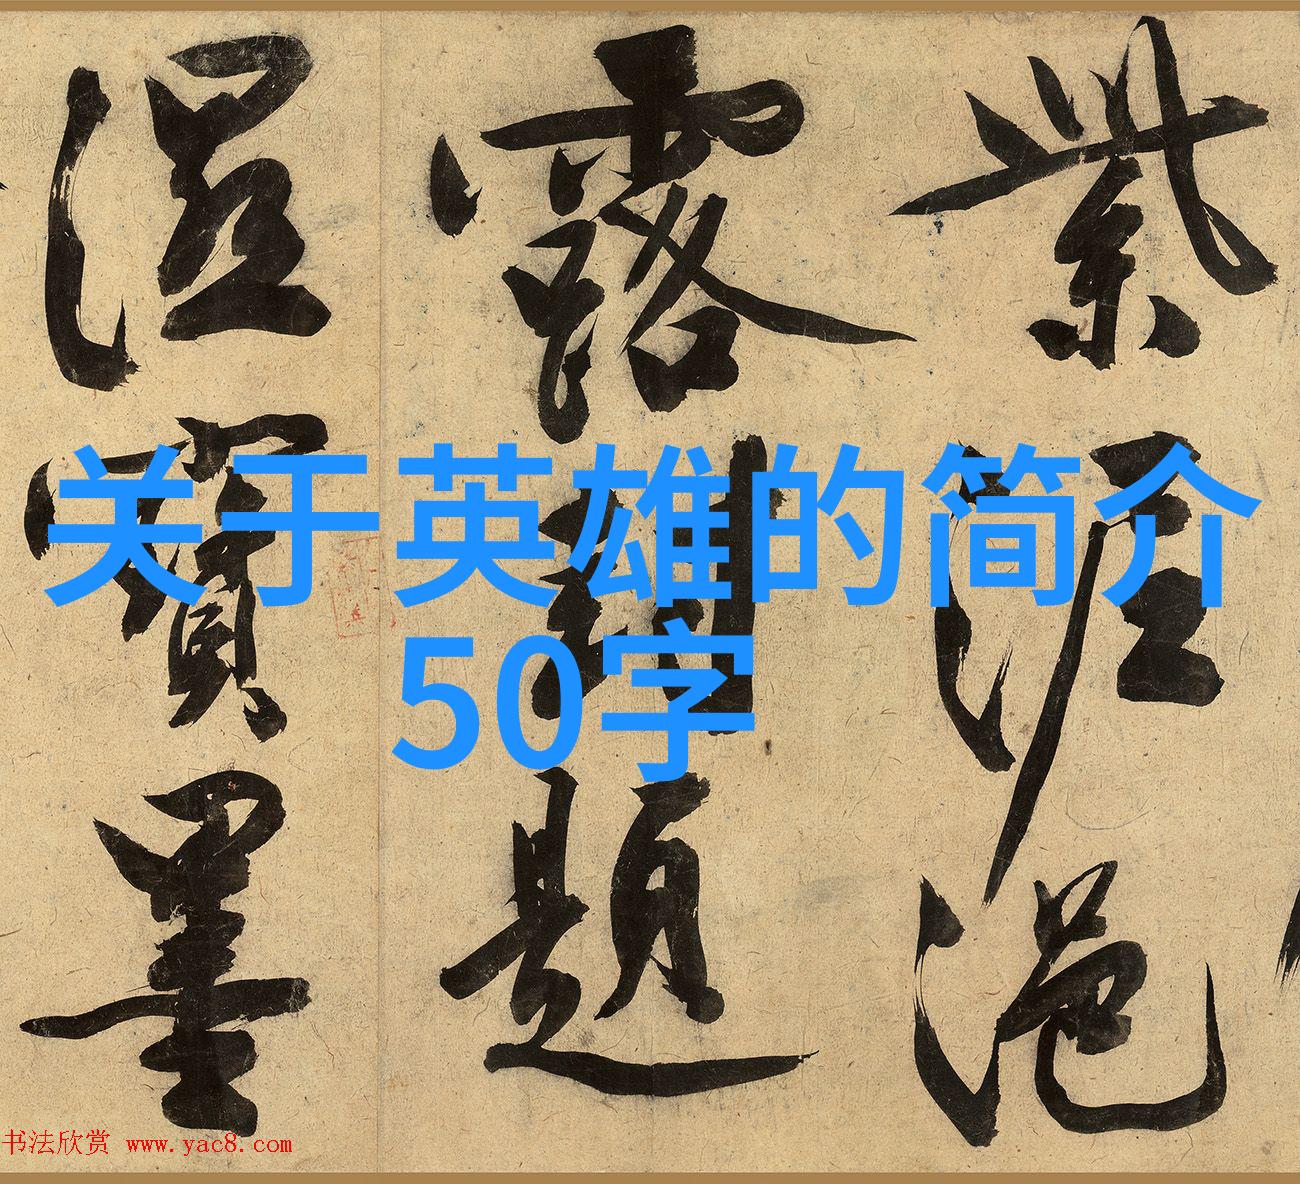 关于英雄的简介
50字
紫泥浥
露封題
湿寶墨
书法欣赏 www.yac8.com